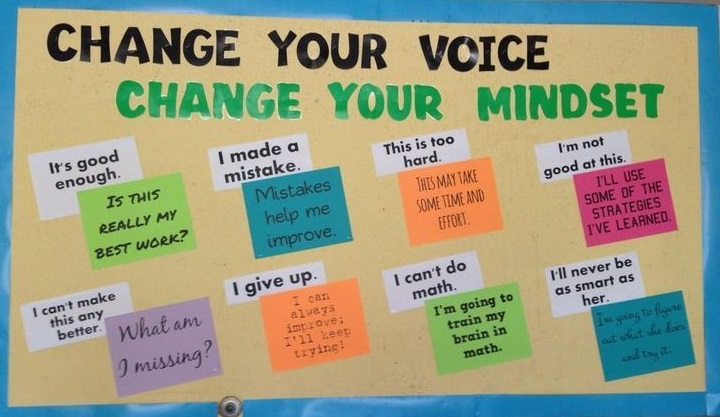 CHANGE YOUR VOICE
CHANGE YOUR MINDSET
It's good
enough.
IS THIS
REALLY MY
BEST WORK?
I made a
mistake.
Mistakes
help me
improve.
This is too
hard.
THIS MAY TAKE
SOME TIME AND
EFFORT.
I'm not
good at this.
I'LL USE
SOME OF THE
STRATEGIES
I'VE LEARNED.
I can't make
this any
better.
What am
I missing?
I give up.
I can
always
improve;
I'll keep
trying!
I can't do
math.
I'm going to
train my
brain in
math.
I'll never be
as smart as
her.
I'm going to figure
out what she does
and try it.